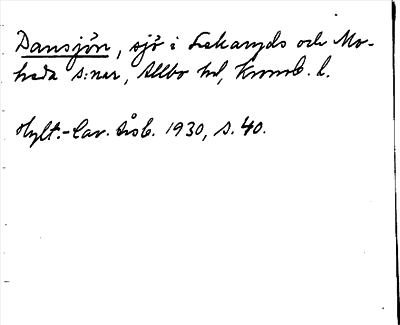 Dansjön, sjö i Lekaryds och Mo-
heda s:nar, Allbo hd, Kronob. l.
Hylt.-Cav. årsb. 1930, s. 40.